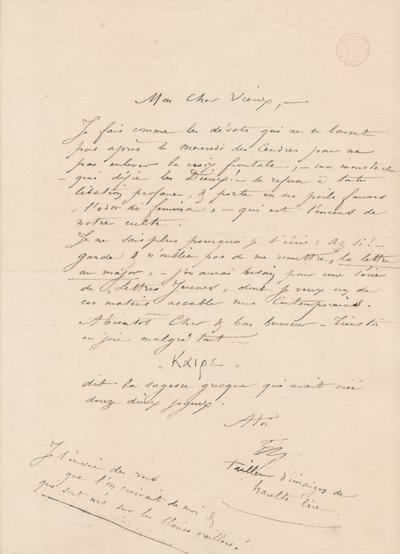 Mon Cher Vieux, —
Je fais comme les dévots qui ne se lavent
pas après le mercredi des Cendres pour ne
pas enlever la croix frontale, — ma moustache
qui défie les Dieux! — se refuse à toute
libation profane, & porte en ses poils fauves
"l'odor di femina" — qui est l'encens de
notre culte.
Je ne sais plus pourquoi je t'écris: Ah si! —
garde & n'oublie pas de me remettre "la lettre
au major" — j'en aurai besoin pour une série
de "Lettres" dont je veux un de
ces matins accabler mes Contemporains.
A bientôt Cher & bon
en joie malgré tout
"Καιρε"
dit la sagesse grecque qui avait créé
douze dieux joyeux.
A toi
tailleur d'imaiges de
haulte
Je t'envoie des vers
que l'on de moi &
qui sont nés sur les